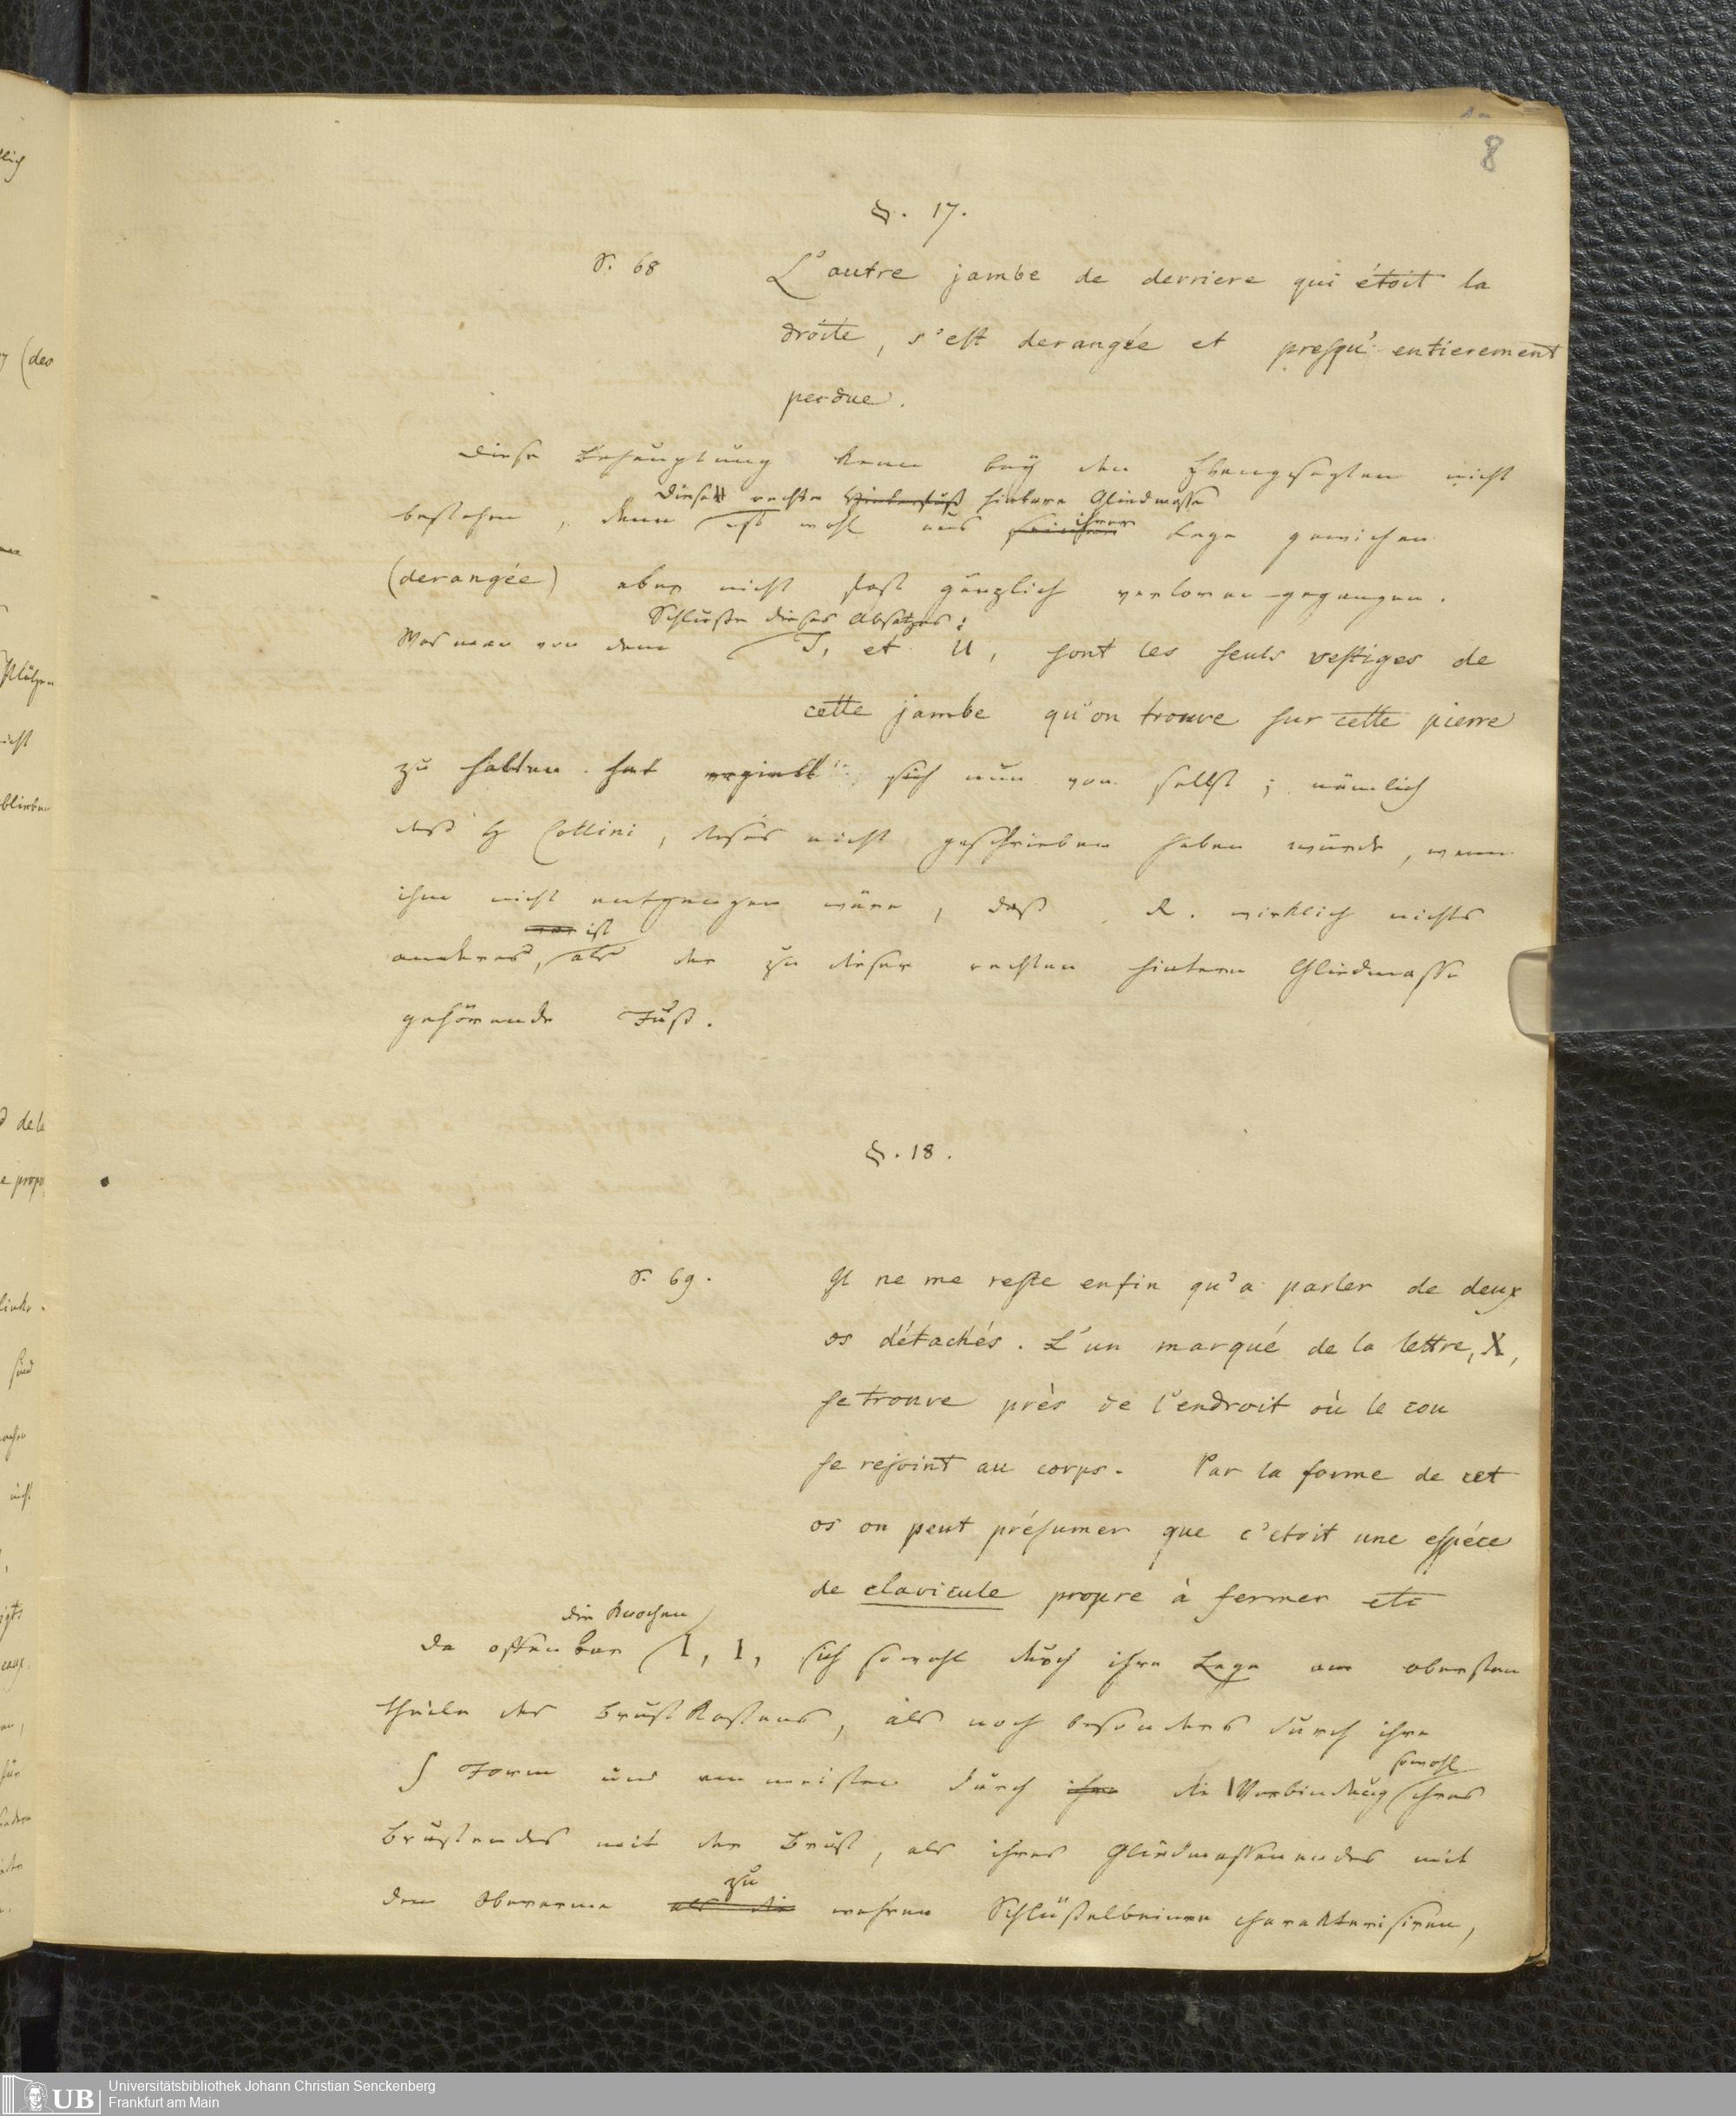 8
§. 17.
S. 68 L'autre jambe de derriere qui étoit la
droite, s'est derangée et presqu' entierement
perdue.
Diese Behauptung kann beÿ dem Ebengesagten nicht
Diese rechte Hinterfuß hintere Gliedmasse
bestehen, denn ist wohl aus ihrer Lage gewichen
(derangée) aber nicht fast gänzlich verloren gegangen.
Schluße dieses Absatzes:
Was man von dem T, et U, sont les seuls vestiges de
cette jambe qu'on trouve sur cette pierre
zu halten hat ergiebt sich nun von selbst; nämlich
daß H Collini, dieses nicht geschrieben haben würde, wenn
ihm nicht entgangen wäre, daß R. wirklich nichts
war ist
anderes, als der zu dieser rechten hintern Gliedmasse
gehörende Fuß.
§. 18.
S. 69. Il ne me reste enfin qu'a parler de deux
os détachés. L'un marqué de la lettre, X,
se trouve près de l'endroit où le cou
se rejoint au corps. Par la forme de cet
os on peut présumer que c'etoit une espéce
de clavicule propre à fermer etc
die Knochen
da offenbar l, l, sich sowohl durch ihre Lage am obersten
Theile des Brustkastens, als noch besonders durch ihre
S Form und am meisten durch ihre die Verbindung ihres
sowohl
Brustendes mit der Brust, als ihres Gliedmassenendes mit
zu
dem Oberarme als die wahren Schlüßelbeinen charakterisiren,
(des
de la
e propo
UB Universitätsbibliothek Johann Christian Senckenberg
Frankfurt am Main